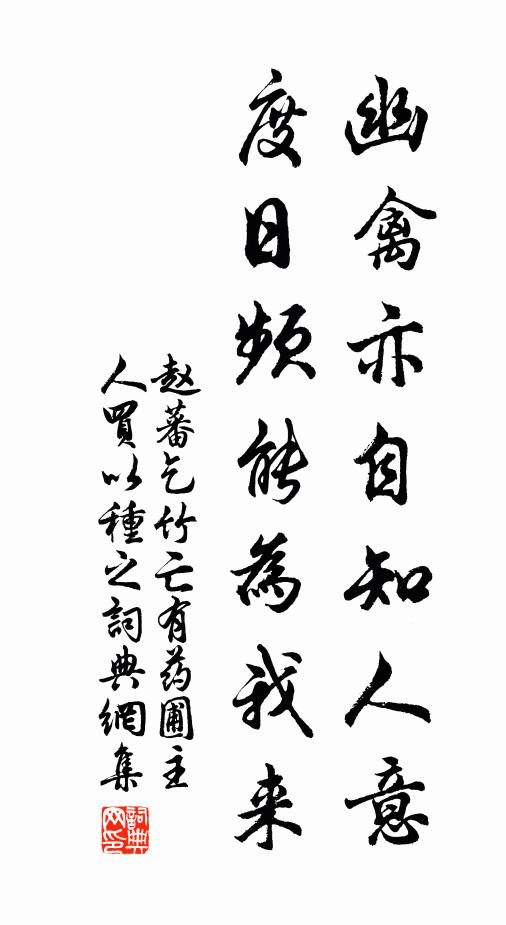 幽禽亦自知人意
度日频能為我来
赵蕃乞竹亡有药圃主
人買以種之詞典網集
詞典
网印